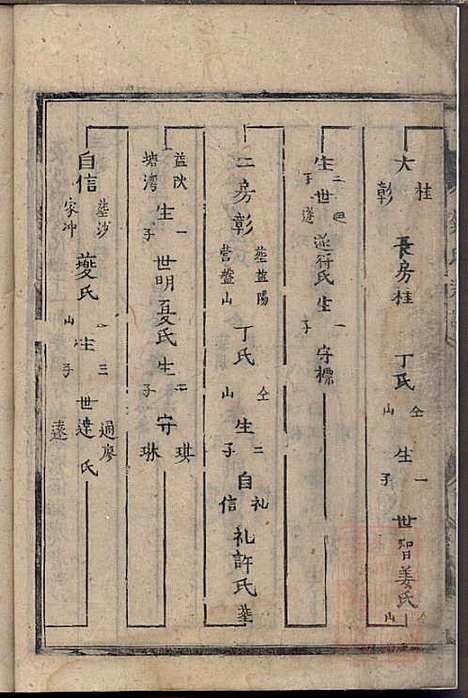 大 桂彰 長房桂 丁氏 仝山 生 一子 世智姜氏 山
生 三子 世遂 氏生 一子 守標
二房彰 塟益陽營盤山 丁氏 仝山 生 二子 自礼信 礼許氏 塟
益陝塘湾 生 一子 世明夏氏 生 二子 守 琪琳
自信 塟沙家冲 夔氏 一山 生 三子 世達遠 過廖氏